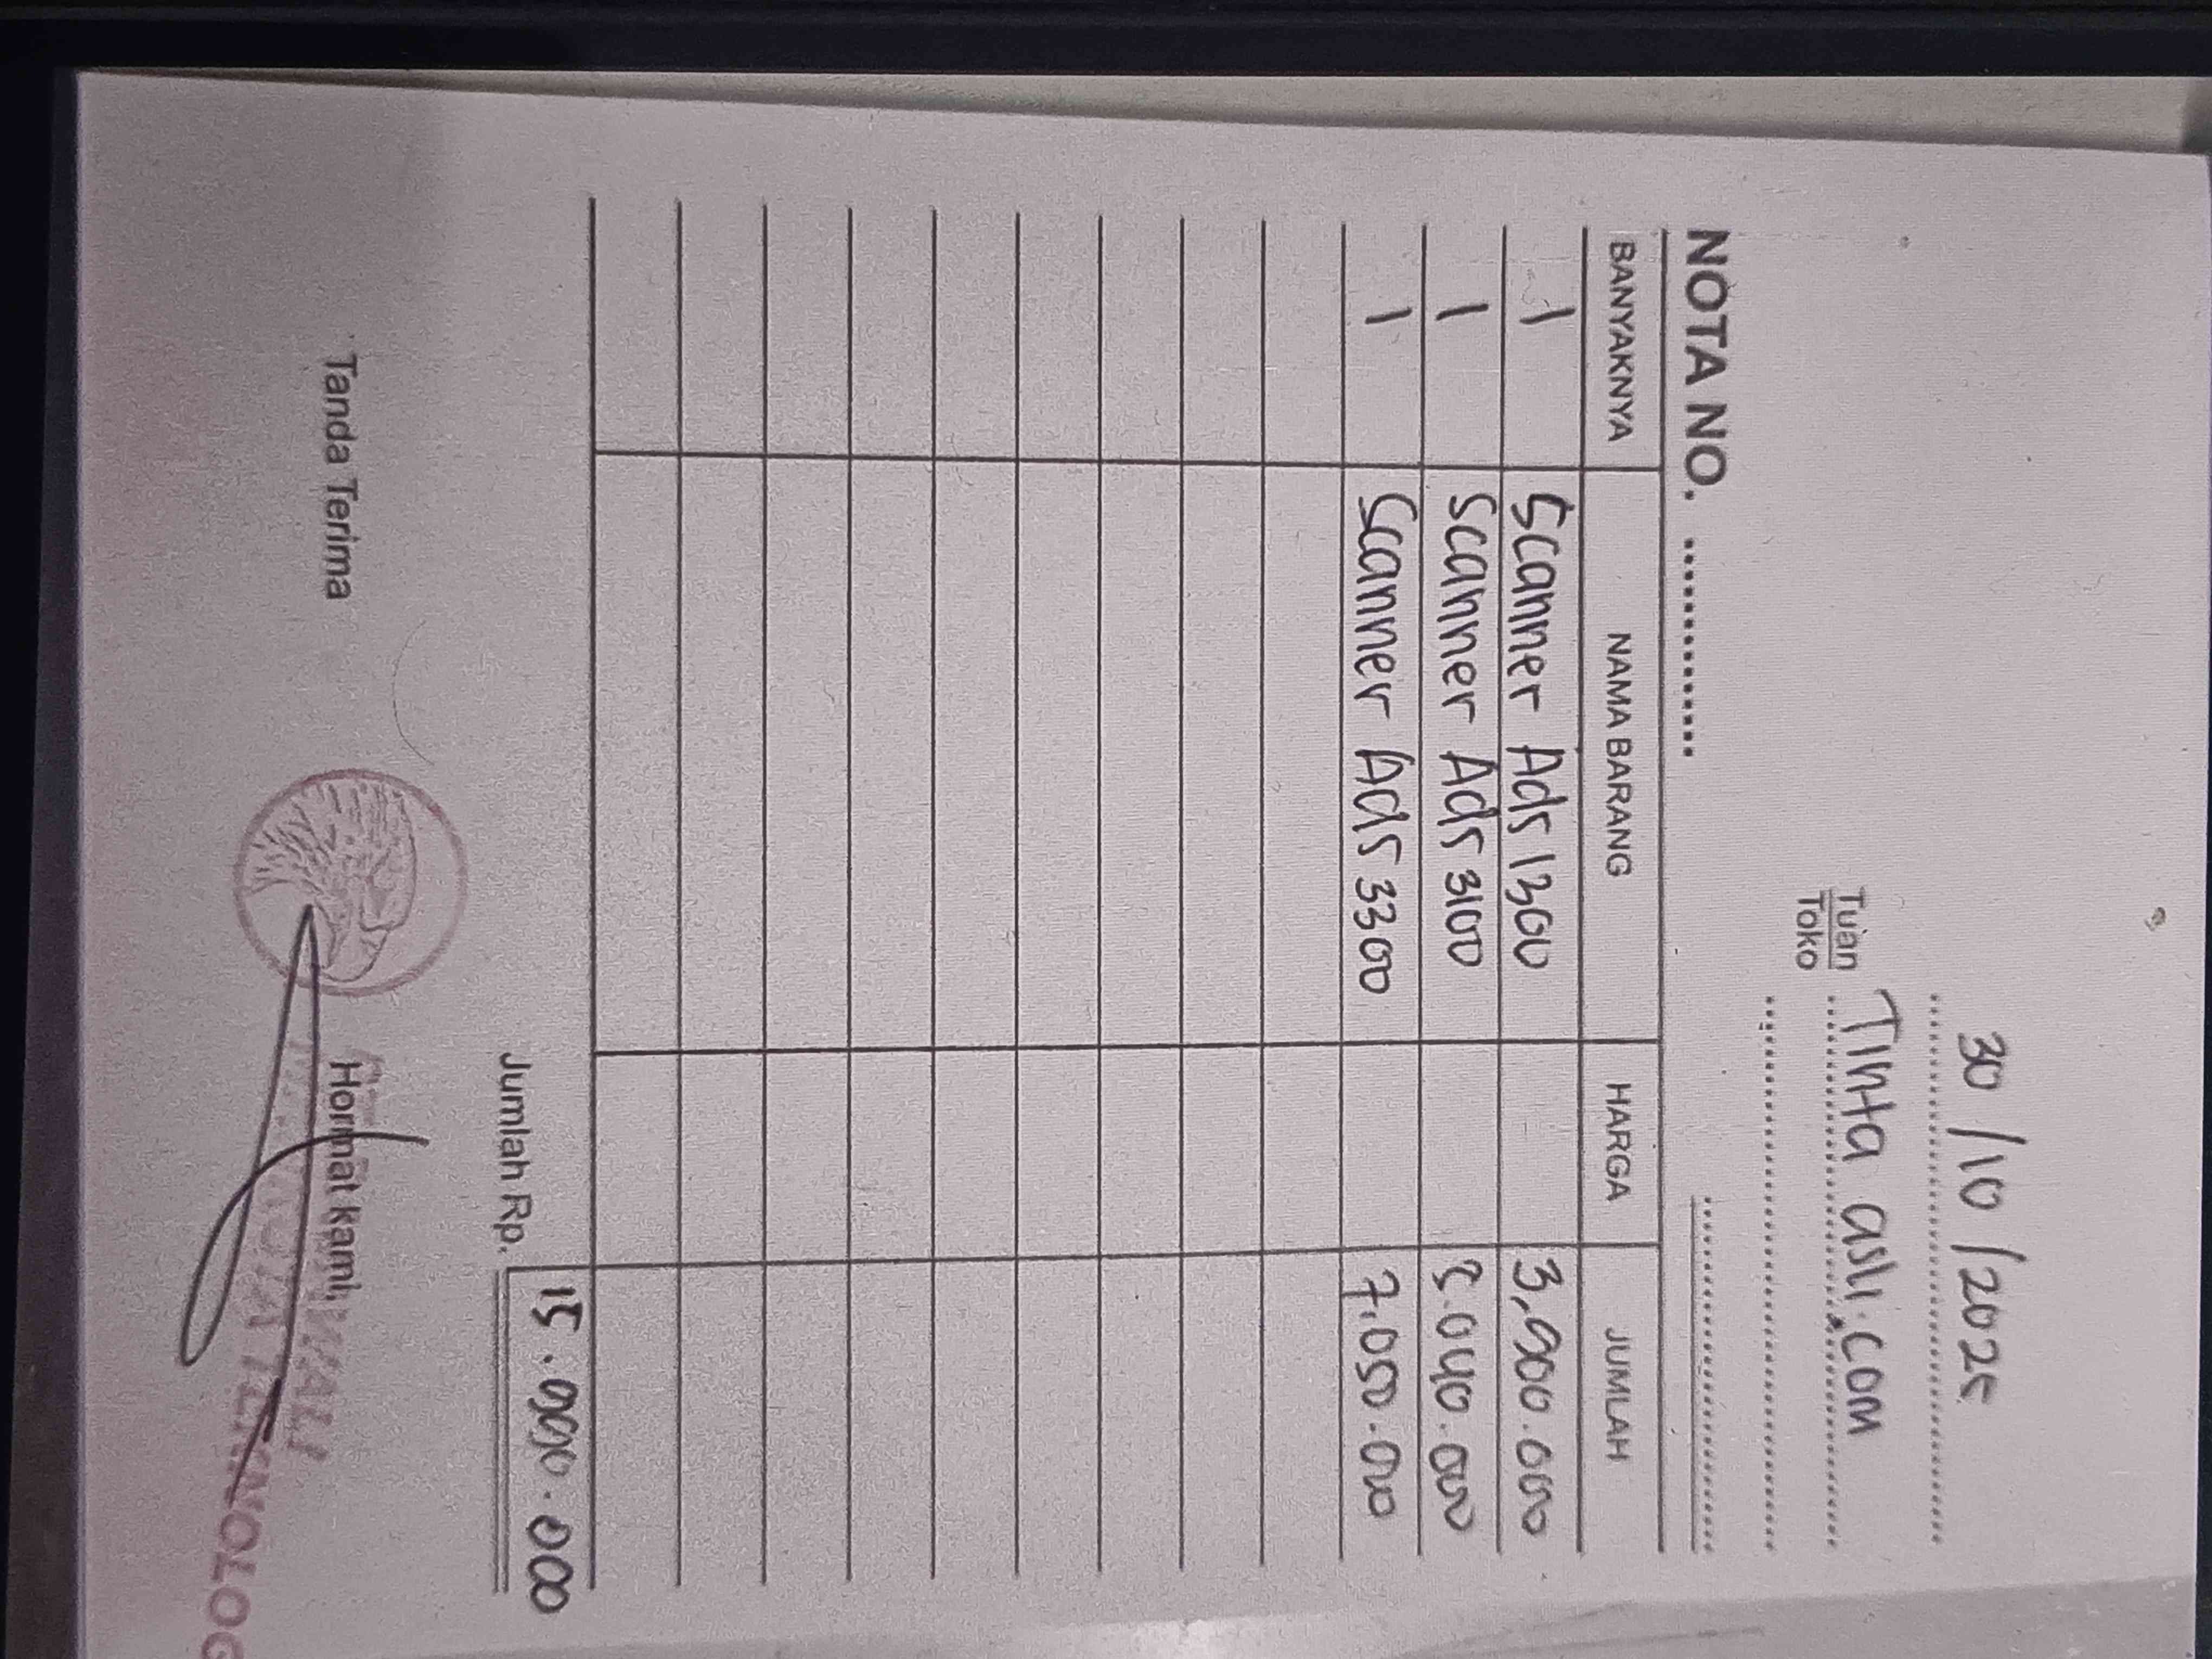 30/10/2025
Tuan
Toko
Tinta asli.com
NOTA NO.
BANYAKNYA NAMA BARANG HARGA JUMLAH
1 Scanner Ads 1300 3,900.000
1 Scanner Ads 3100 5.040.000
1 Scanner Ads 3300 7.050.000
Jumlah Rp. 15.990.000
Tanda Terima Hormat kami,